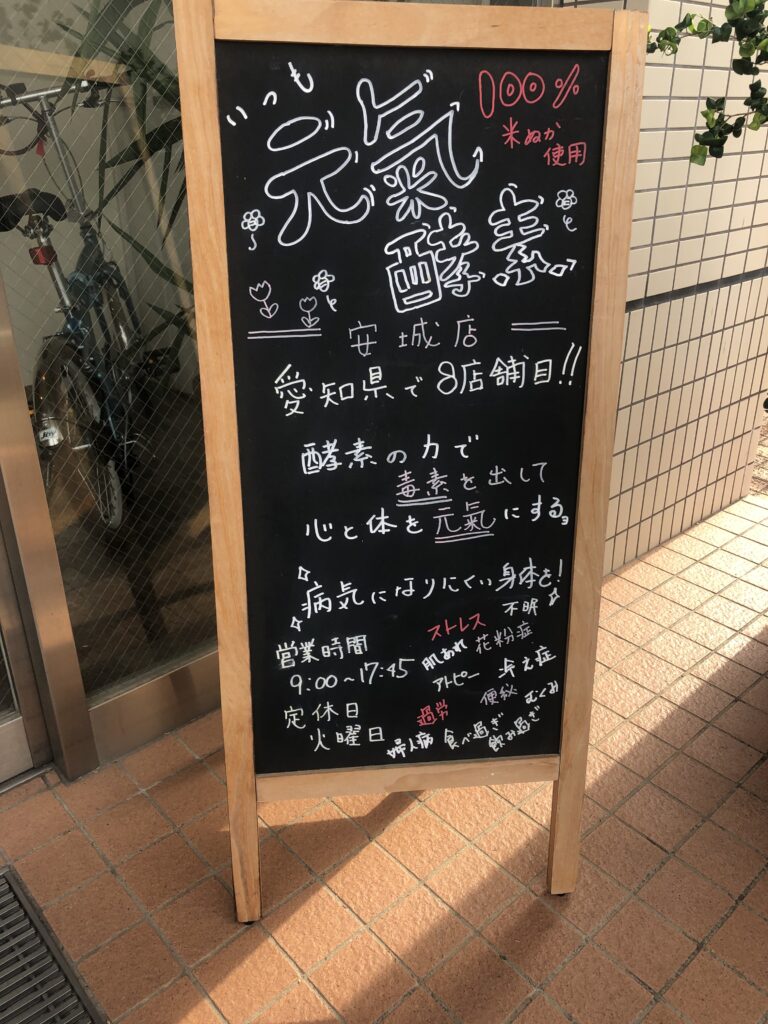 いつも
元氣
酵素
100%
米ぬか
使用
安城店
愛知県で8店舗目!!
酵素の力で
毒素を出して
心と体を元氣にする。
病気になりにくい身体を!
営業時間
9:00〜17:45
定休日
火曜日
ストレス
不眠
肌あれ
花粉症
アトピー
冷え症
便秘
むくみ
過労
婦人病
食べ過ぎ
飲み過ぎ